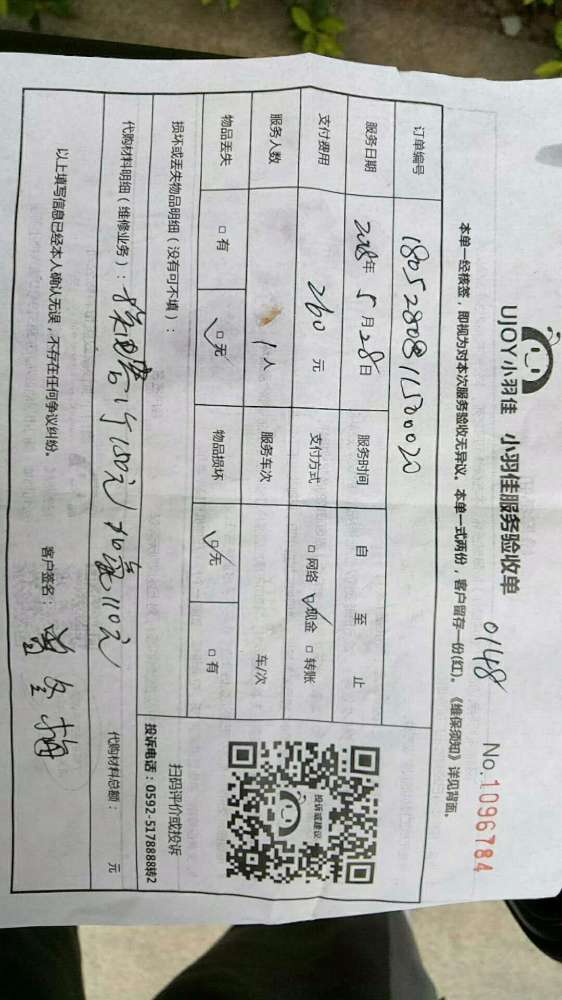 UJOY小羽佳 小羽佳服务验收单
0148 No.1096784
本单一经核签，即视为对本次服务验收无异议。本单一式两份，客户留存一份(红)。《维保须知》详见背面。
订单编号 1805280811500020
服务日期 2018年 5月28日 服务时间 自 至 止
支付费用 260 元 支付方式 □网络 ☑现金 □转账
服务人数 1人 服务车次 车/次
物品丢失 □有 ☑无 物品损坏 ☑无 □有
损坏或丢失物品明细（没有可不填）：
代购材料明细（维修业务）： 1个150元 110元 代购材料总额： 元
以上填写信息已经本人确认无误，不存在任何争议纠纷。 客户签名：
投诉或建议
扫码评价或投诉
投诉电话：0592-5178888转2